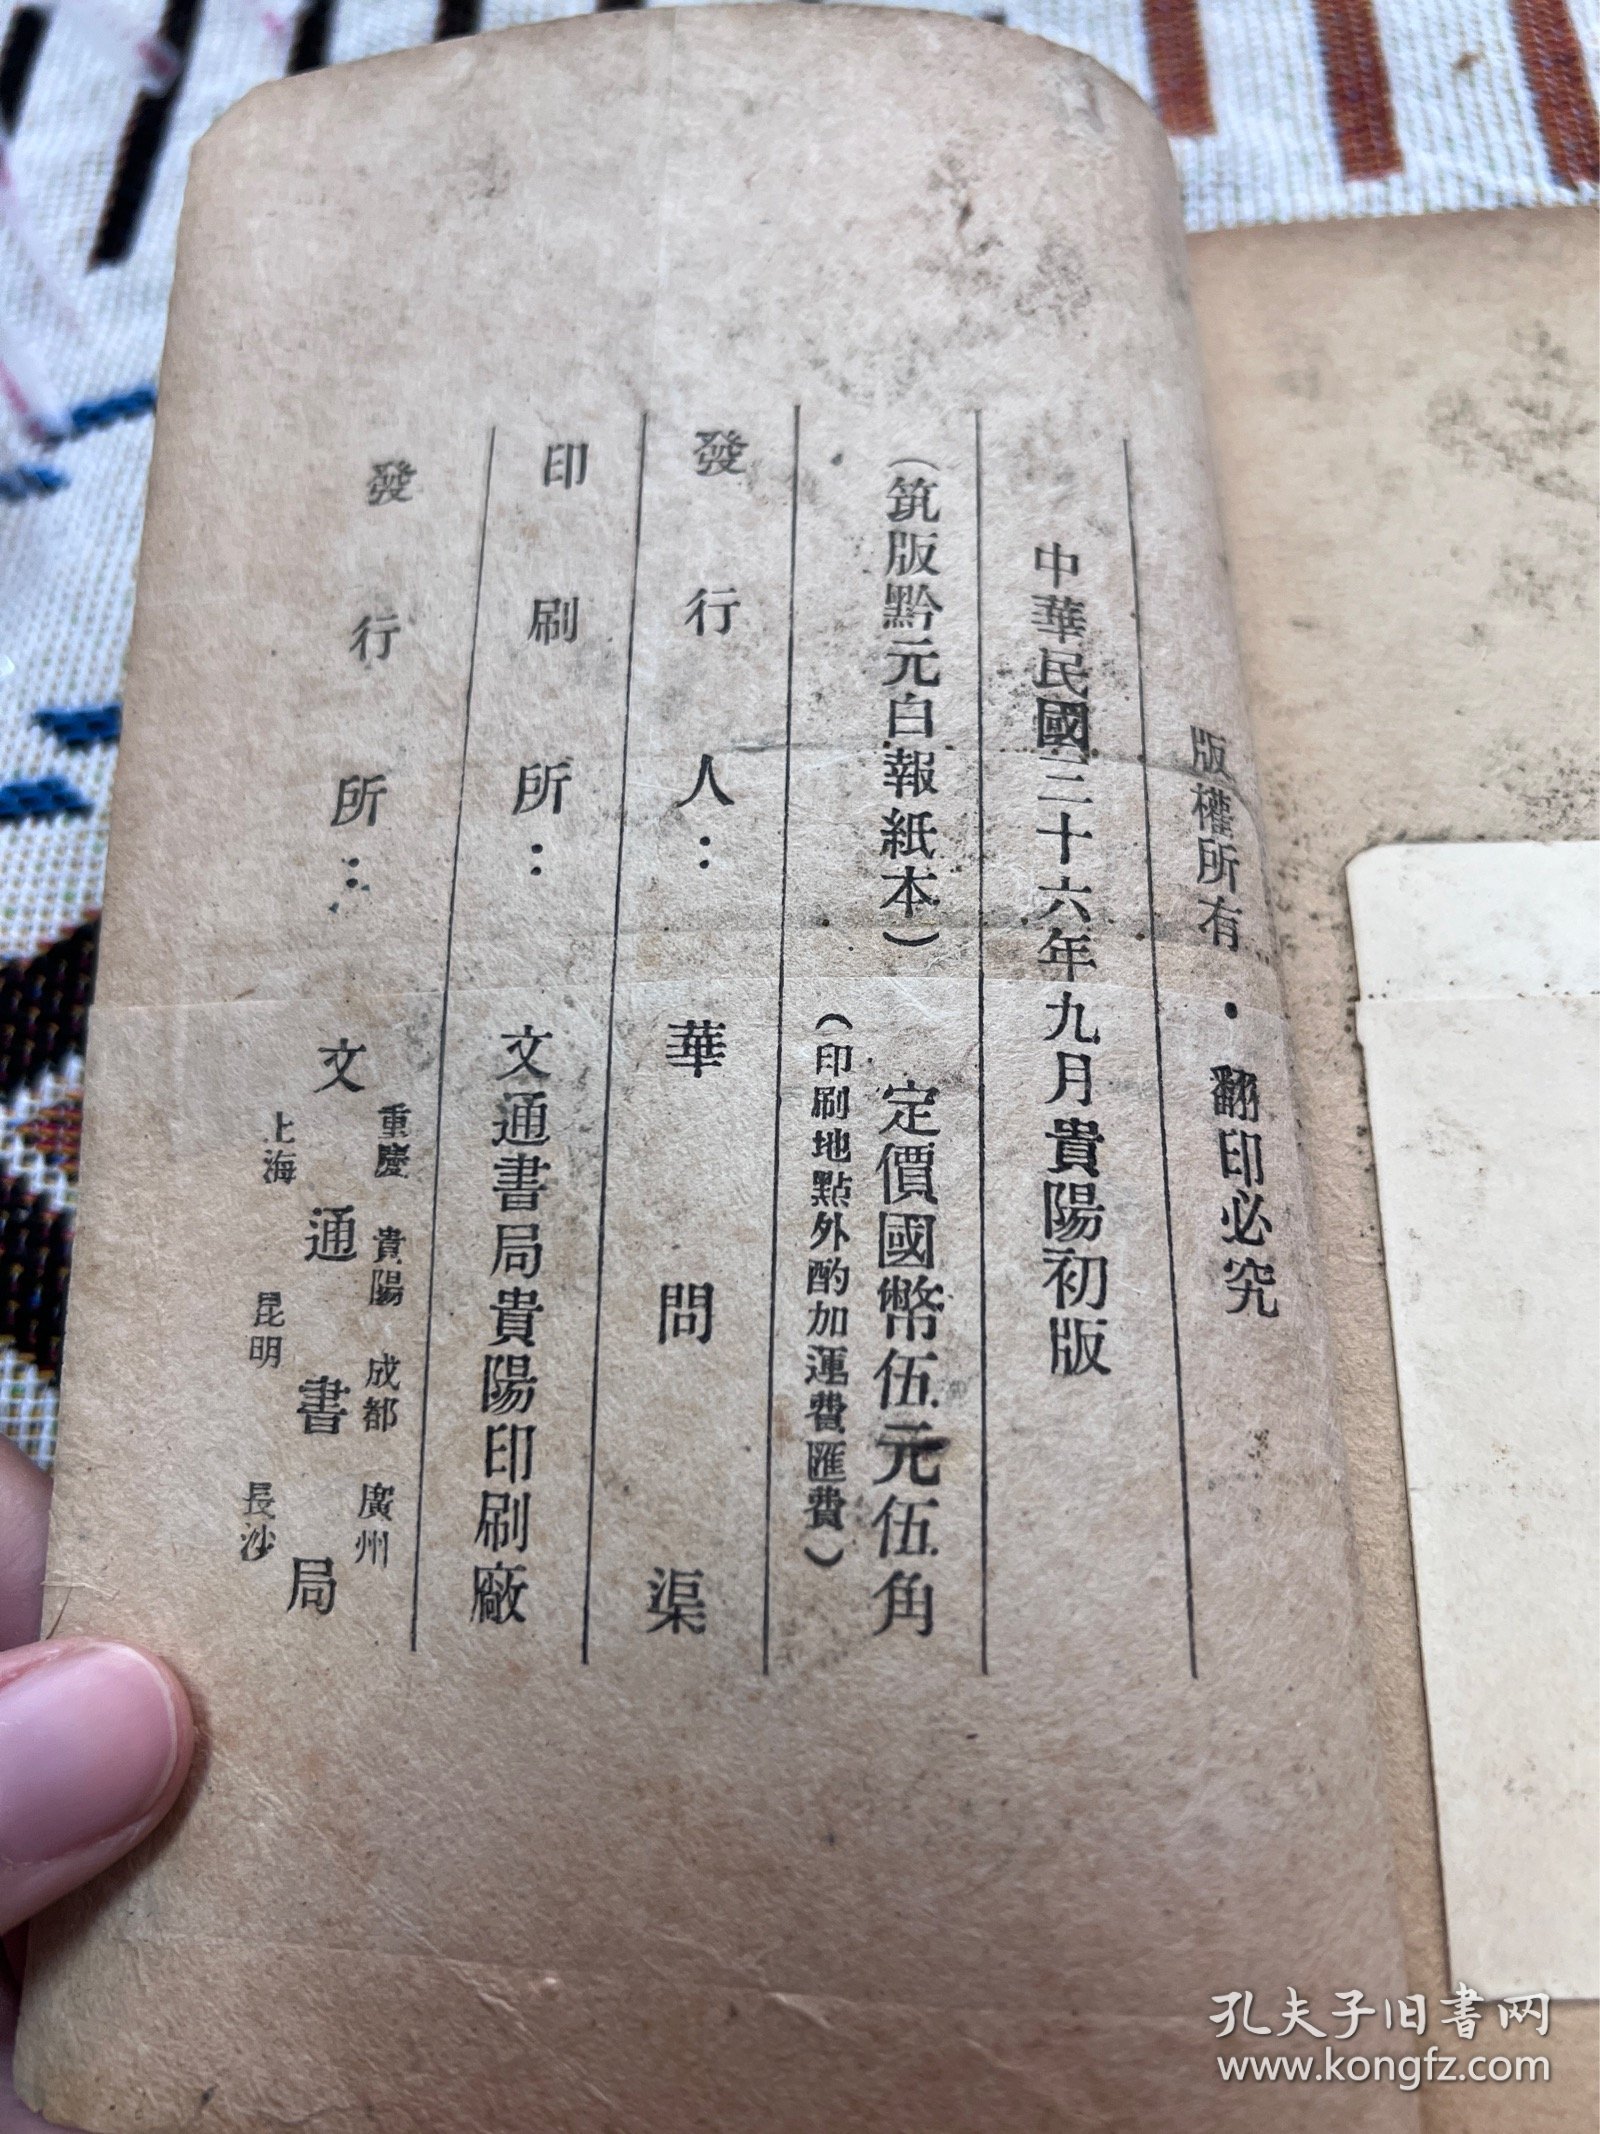 版權所有・翻印必究
中華民國三十六年九月貴陽初版
(筑版黔元白報紙本) 定價國幣伍元伍角
(印刷地點外酌加運費匯費)
發行人: 華問渠
印刷所: 文通書局貴陽印刷廠
發行所: 文通書局
重慶 貴陽 成都 廣州
上海 昆明 長沙
孔夫子旧书网
www.kongfz.com